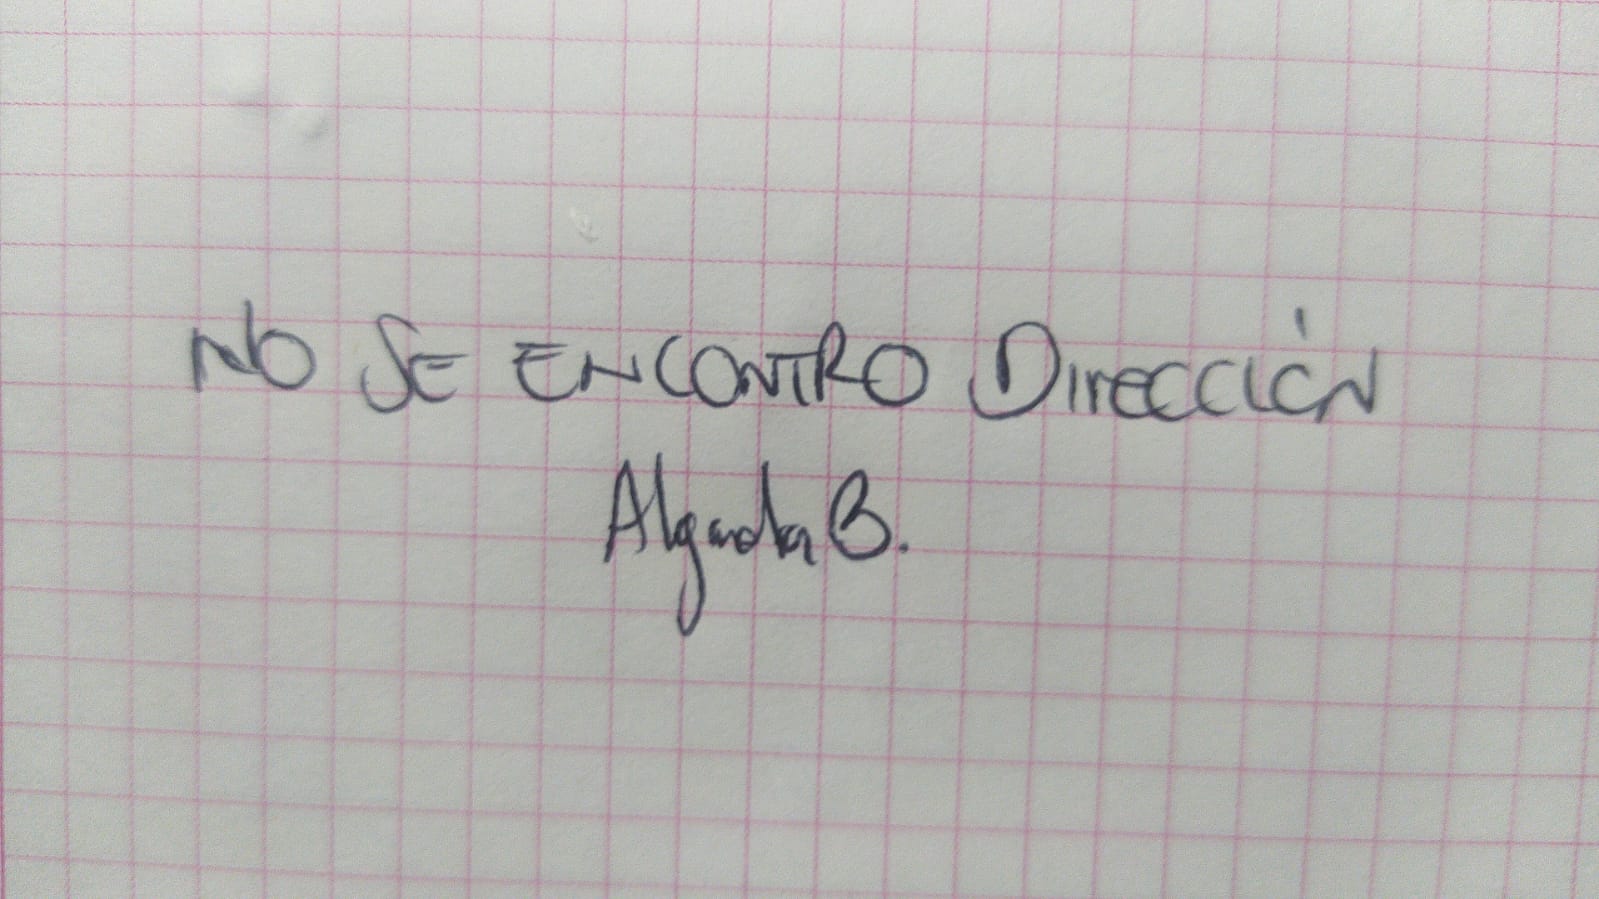 NO SE ENCONTRO Dirección
B.